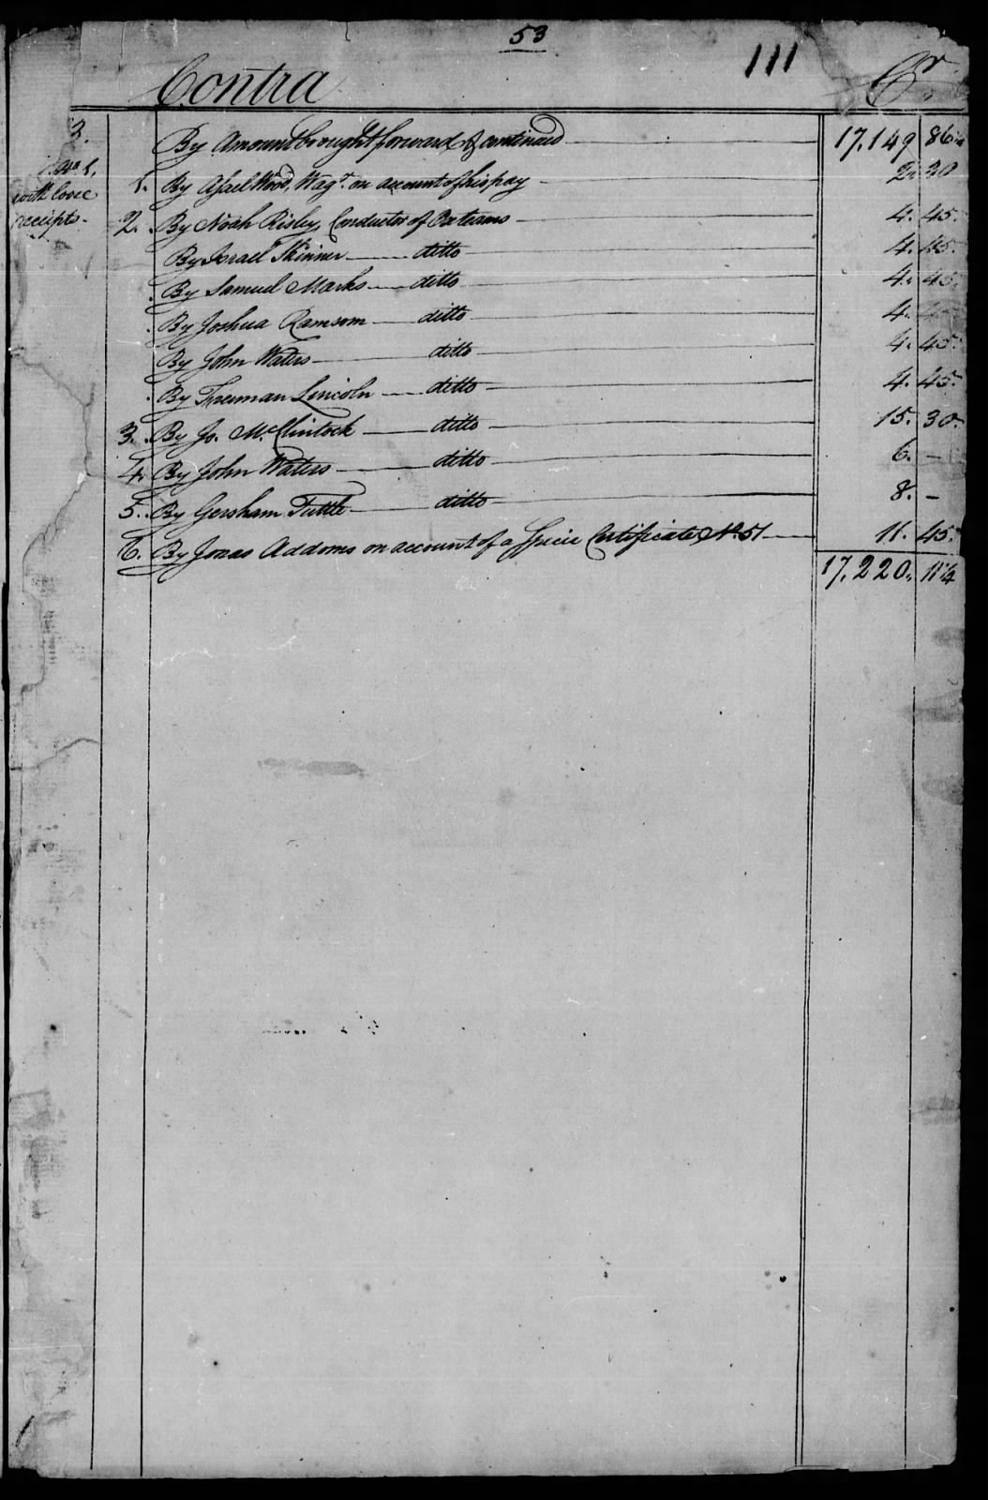 53
111
Contra Cr.
3. By Amount brought forward & continued 17,149 86
1. By Asael Wood, Wagr. on account of his pay 2. 20
with loose
receipts. 2. By Noah Risley, Conductor of Ox teams 4. 45.
By Israel Skinner ditto 4. 45.
By Samuel Marks ditto 4. 45.
By Joshua Ramsom ditto 4. 45
By John Waters ditto 4. 45.
By Freeman Lincoln ditto 4. 45.
3. By Jo. McClintock ditto 15. 30.
4. By John Waters ditto 6. –
5. By Gersham Tuttle ditto 8. –
6. By Jonas Addoms on account of a Specie Certificate No. 51 11. 45.
17,220. 11¼